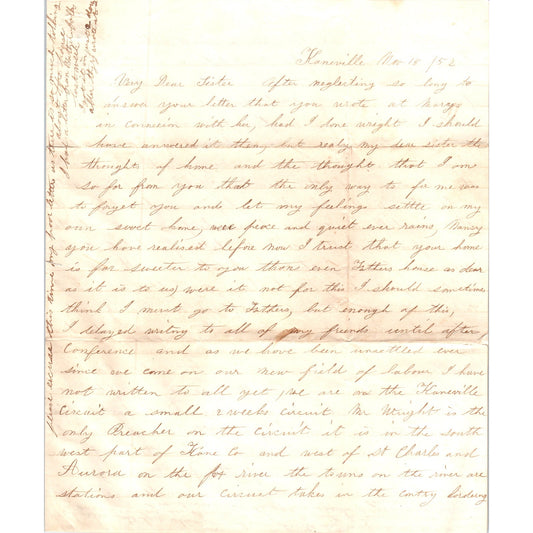 Kaneville Nov 15 /52
Very Dear Sister After neglecting so long to
answer your letter that you wrote at Marys
in connexion with her, had I done wright I should
have answered it then, but realy my dear sister the
thoughts of home and the thought that I am
so far from you that the only way to for me was
to forget you and let my feelings settle on my
own sweet home, peace and quiet ever rains, Nancy
you have realised before now I trust that your home
is far sweeter to you than even Fathers house as dear
as it is to us, were it not for this I should sometimes
think I must go to Fathers, but enough of this,
I delayed writing to all of my friends until after
Conference and as we have been unsettled ever
since we come on our new field of labour I have
not written to all yet, we are on the Kaneville
Circuit a small 2 weeks Circuit Mr Wright is the
only Preacher on the Circuit it is in the south
west part of Kane Co and west of St Charles and
Aurora on the fox river the towns on the river are
stations and our Circuit takes in the contry bordering
please excuse this time my poor letter as there is so much talking
I had a letter from Betsey folks
last mail
after they wrote to